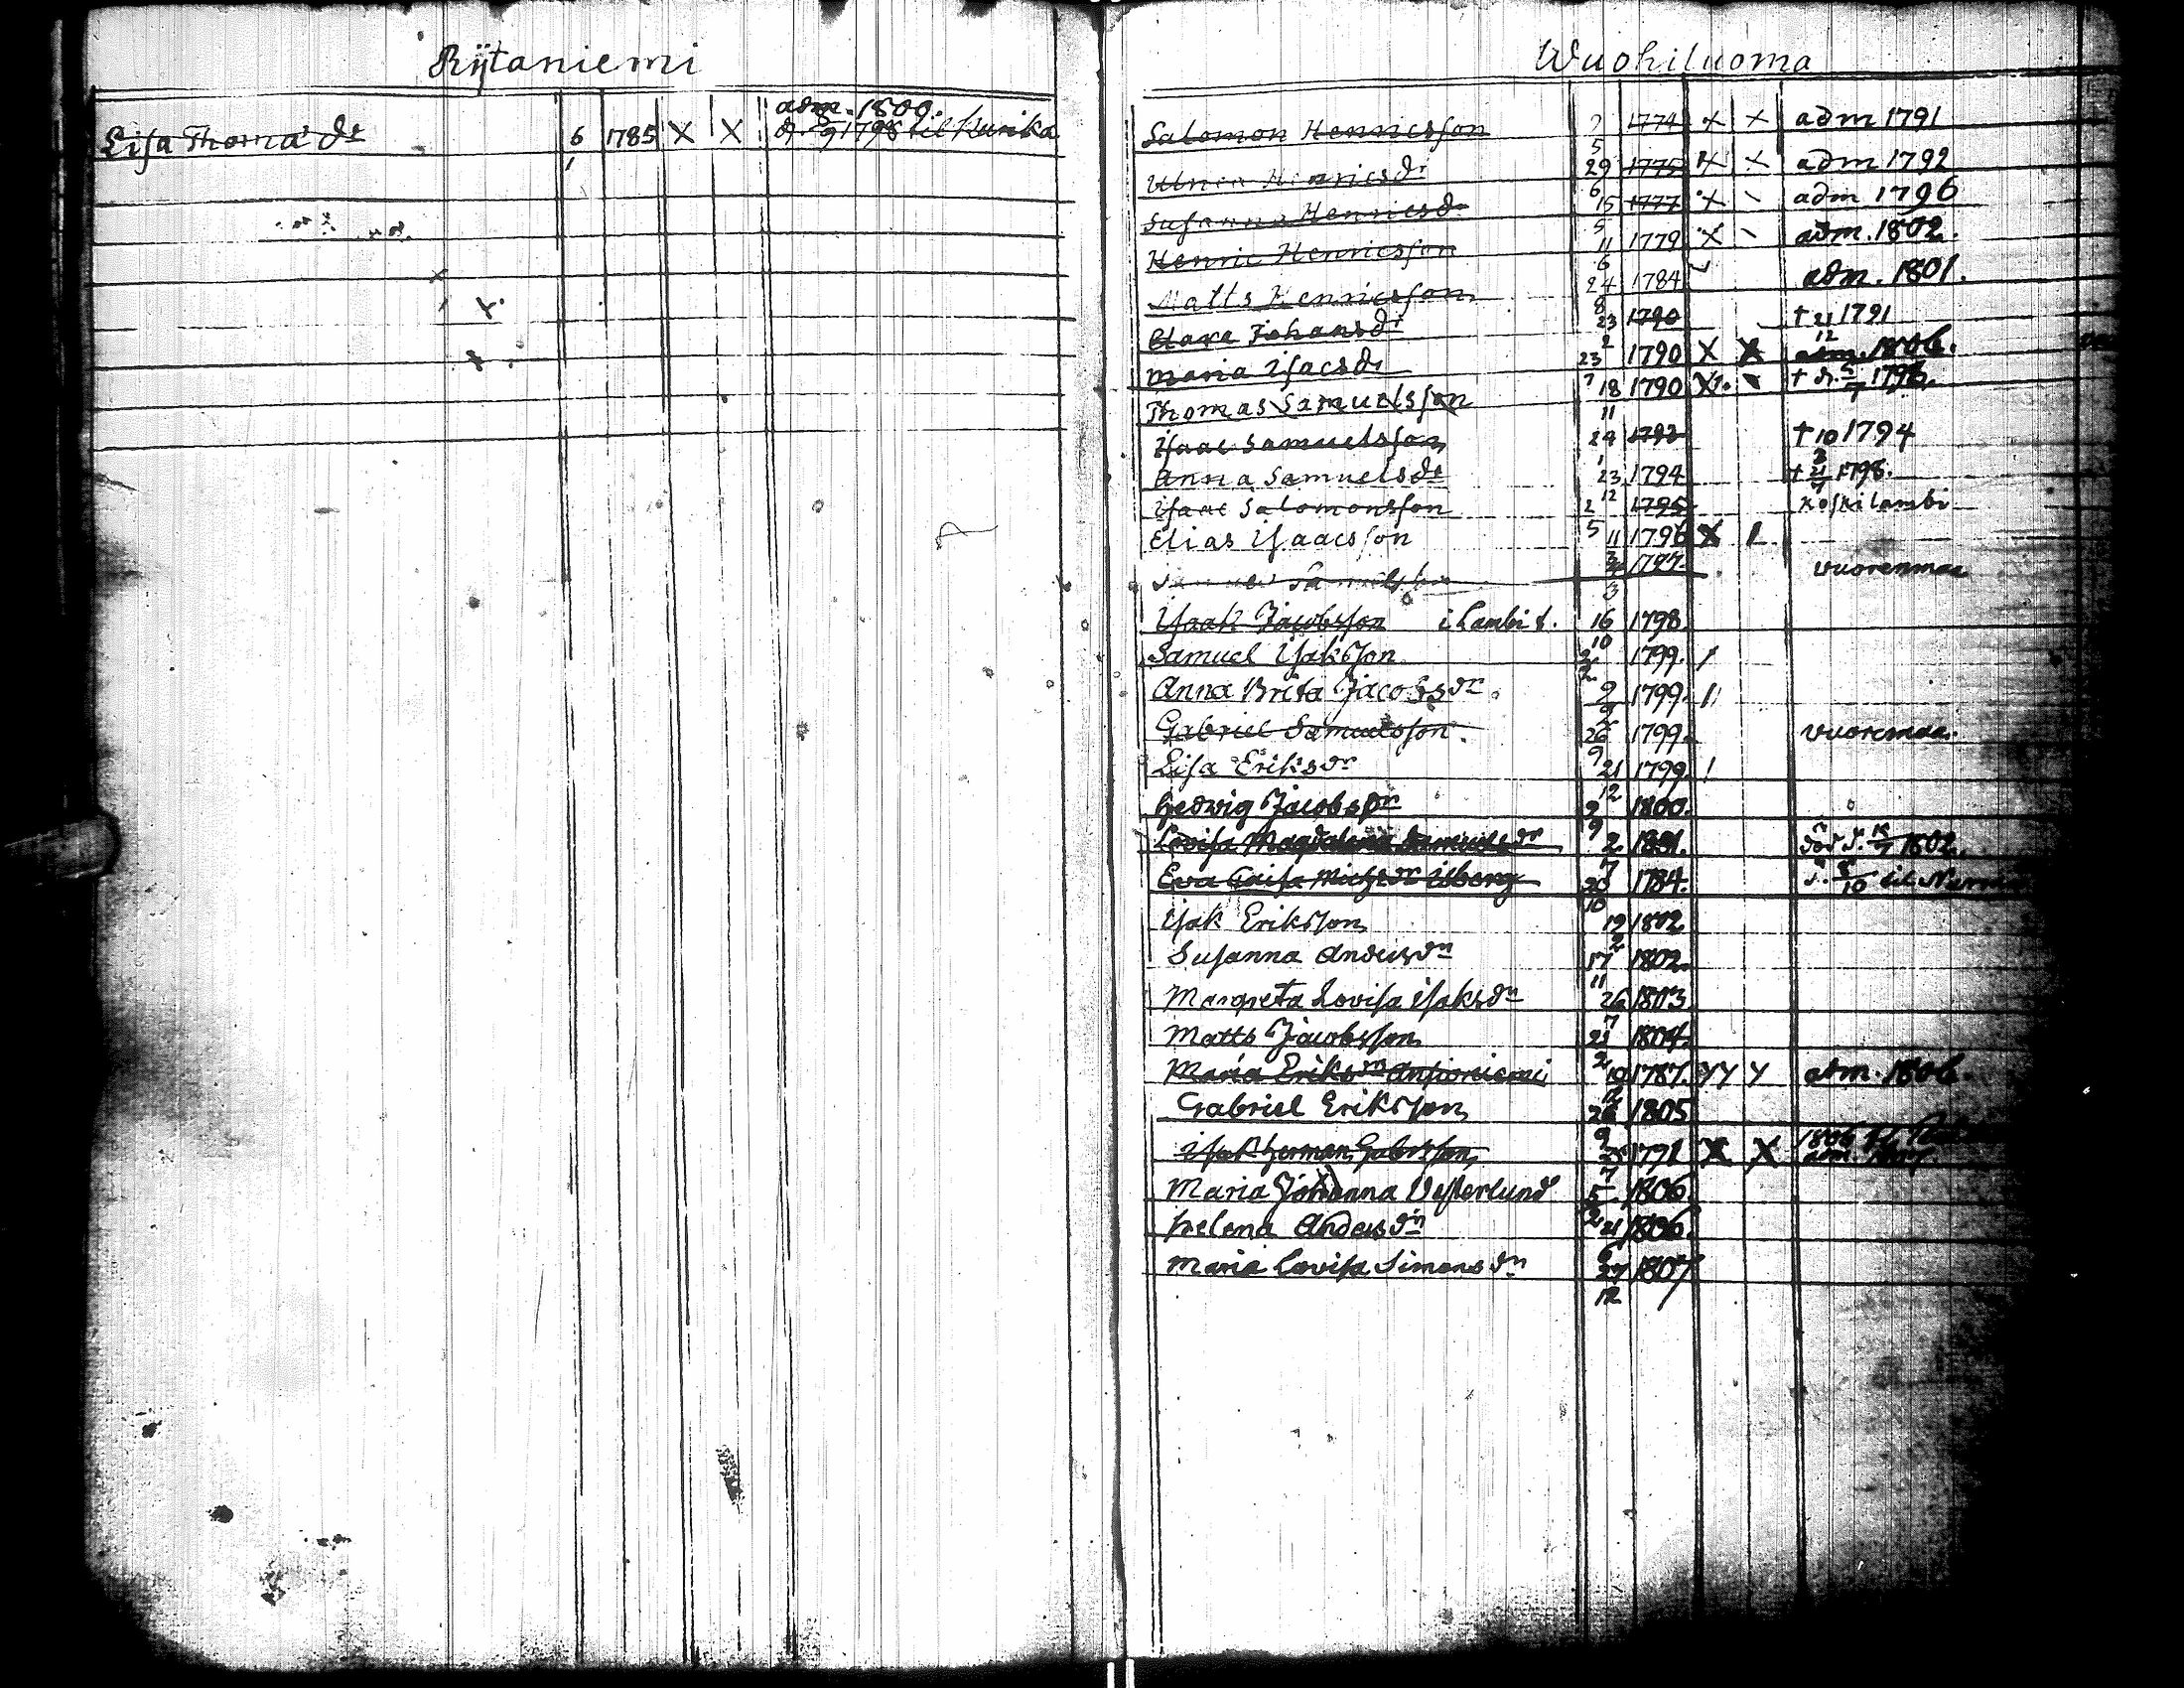 Rijtaniemi
adm. 1800.
Lisa Thoma dr 6 1785 X X 1798 til Kurika
1
Wuohiluoma
Salomon Henricsson 1774 X X adm 1791
5
Henricsdr 29 1775 X X adm 1792
6
Susanna Henricsdr 15 1777 X adm 1796
5
Henric Henricsson 11 1779 X adm. 1802.
6
Matts Henricsson 24 1784 adm. 1801.
8
Clara Johansdr 23 1790 † 21 1791
2 12
Maria Isacsdr 23 1790 X X adm. 1806.
7
Thomas Samuelsson 18 1790 †
11
Isaac Samuelsson 24 1793 † 10 1794
1 3
Anna Samuelsdr 23 1794 † 21 1798.
12
Isaac Salomonsson 2 1795 Koskilambi
5
Elias Isaacsson 11 1796 X
3
Samuelsson 1797 Vuorenmaa
3
Isaak Jacobsson i Lambi 16 1798
10
Samuel Isaksson 1799.
Anna Brita Jacobsdr 9 1799.
Gabriel Samuelsson. 26 1799. Vuorenmaa.
9
Lisa Eriksdr 21 1799
12
Hedwig Jacobsdr 9 1800.
9
Lovisa Magdalena Samuelsdr 2 1801. 1802.
7
Eva Caisa Michsdr Isberg 20 1784. 8/10 til
10
Isak Eriksson 19 1802
2
Susanna Andersdr 17 1802.
11
Margreta Lovisa Isaksdr 26 1803
7
Matts Jacobsson 21 1804.
2
Maria Eriksdr 10 1787. adm. 1806.
12
Gabriel Eriksson 26 1805
9
Isak Herman Gabrsson 1791 X X 1806
7
Maria Johanna Vesterlund 5 1806
2
Helena Andersdr 21 1806.
6
Maria Lovisa Simonsdr 27 1807
12